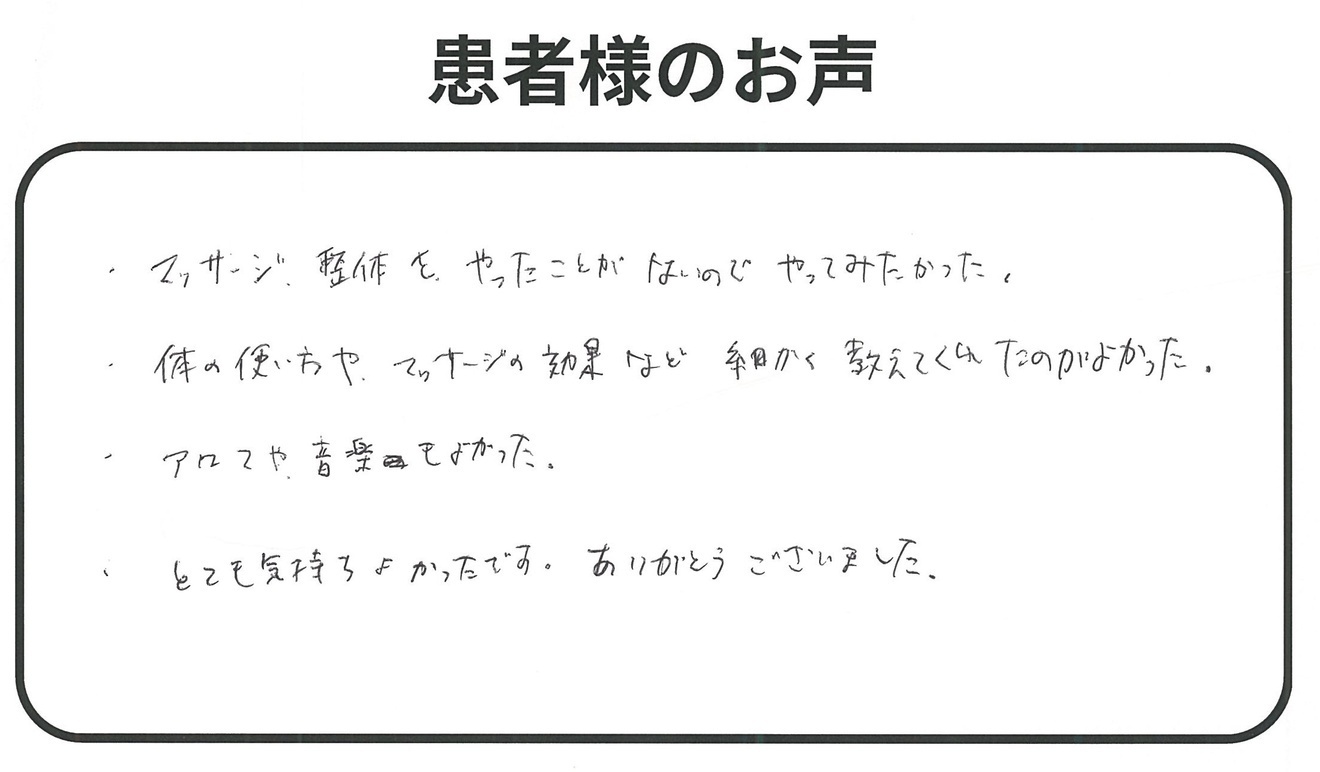 患者様のお声
・ マッサージ、整体を、やったことがないので やってみたかった。
・ 体の使い方や、マッサージの効果など 細かく教えてくれたのがよかった。
・ アロマや、音楽もよかった。
・ とても気持ちよかったです。ありがとうございました。